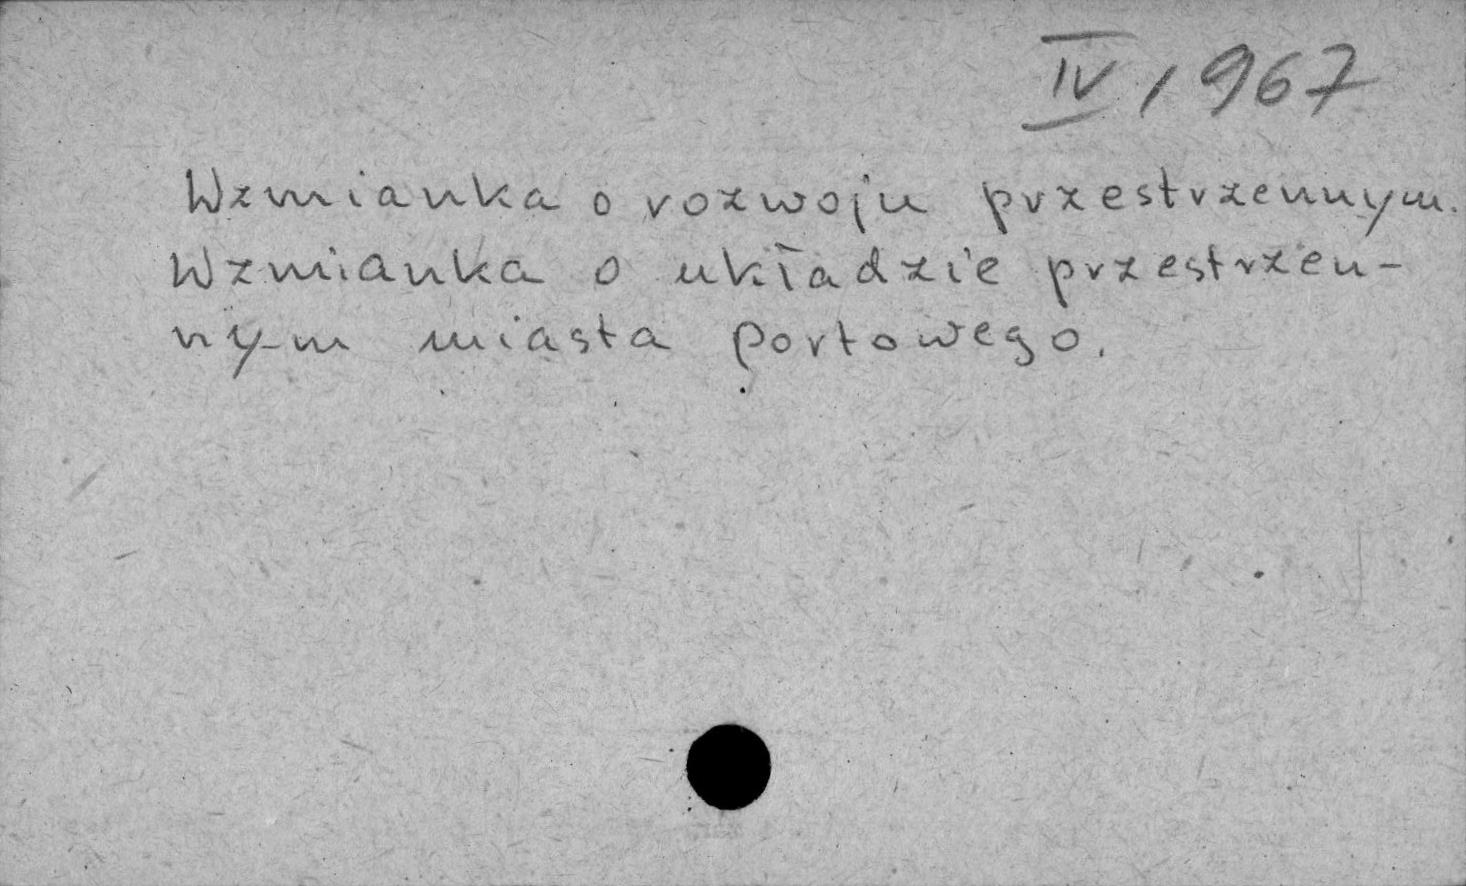 IV, 967
Wzmianka o rozwoju przestrzennym.
Wzmianka o układzie przestrzen-
nym miasta portowego.